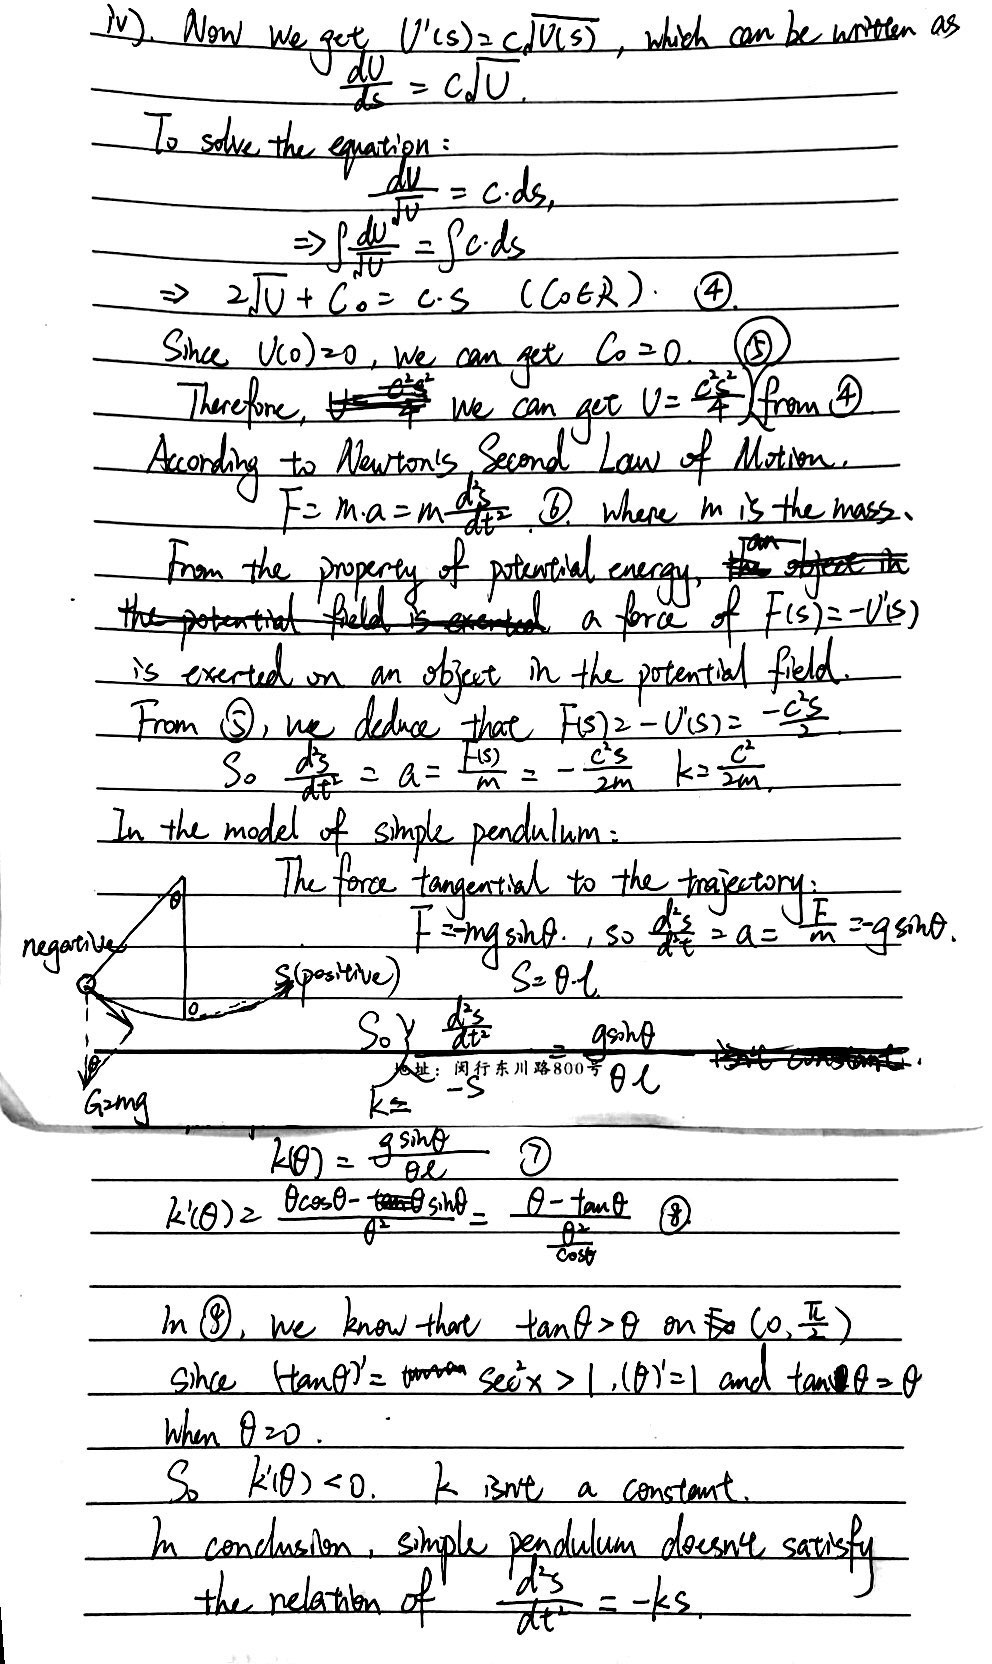 iv). Now we get U'(s) = c√U(s), which can be written as
dU/ds = c√U.
To solve the equation:
dU/√U = c·ds,
⇒ ∫dU/√U = ∫c·ds
⇒ 2√U + C₀ = c·s (C₀∈R). ④.
Since U(0)=0, we can get C₀=0. ⑤
Therefore, we can get U = c²s²/4 from ④
According to Newton's Second Law of Motion.
F = m·a = m d²s/dt² ⑥. where m is the mass.
From the property of potential energy,
a force of F(s) = -U'(s)
is exerted on an object in the potential field.
From ⑤, we deduce that F(s) = -U'(s) = -c²s/2
So d²s/dt² = a = F(s)/m = -c²s/2m k = c²/2m.
In the model of simple pendulum:
The force tangential to the trajectory:
F = -mg sinθ. , so d²s/d²t = a = F/m = -g sinθ.
θ
negative
s(positive)
0
S = θ·l.
So k = d²s/dt² / -s = g sinθ / θl
地址：闵行东川路800号
θ
G=mg
k(θ) = g sinθ / θl ⑦
k'(θ) = θcosθ - sinθ / θ² = θ - tanθ / θ²/cosθ ⑧.
In ⑧, we know that tanθ > θ on (0, π/2)
since (tanθ)' = sec²x > 1, (θ)' = 1 and tanθ = θ
when θ = 0.
So k'(θ) < 0. k isn't a constant.
In conclusion, simple pendulum doesn't satisfy
the relation of d²s/dt² = -ks.